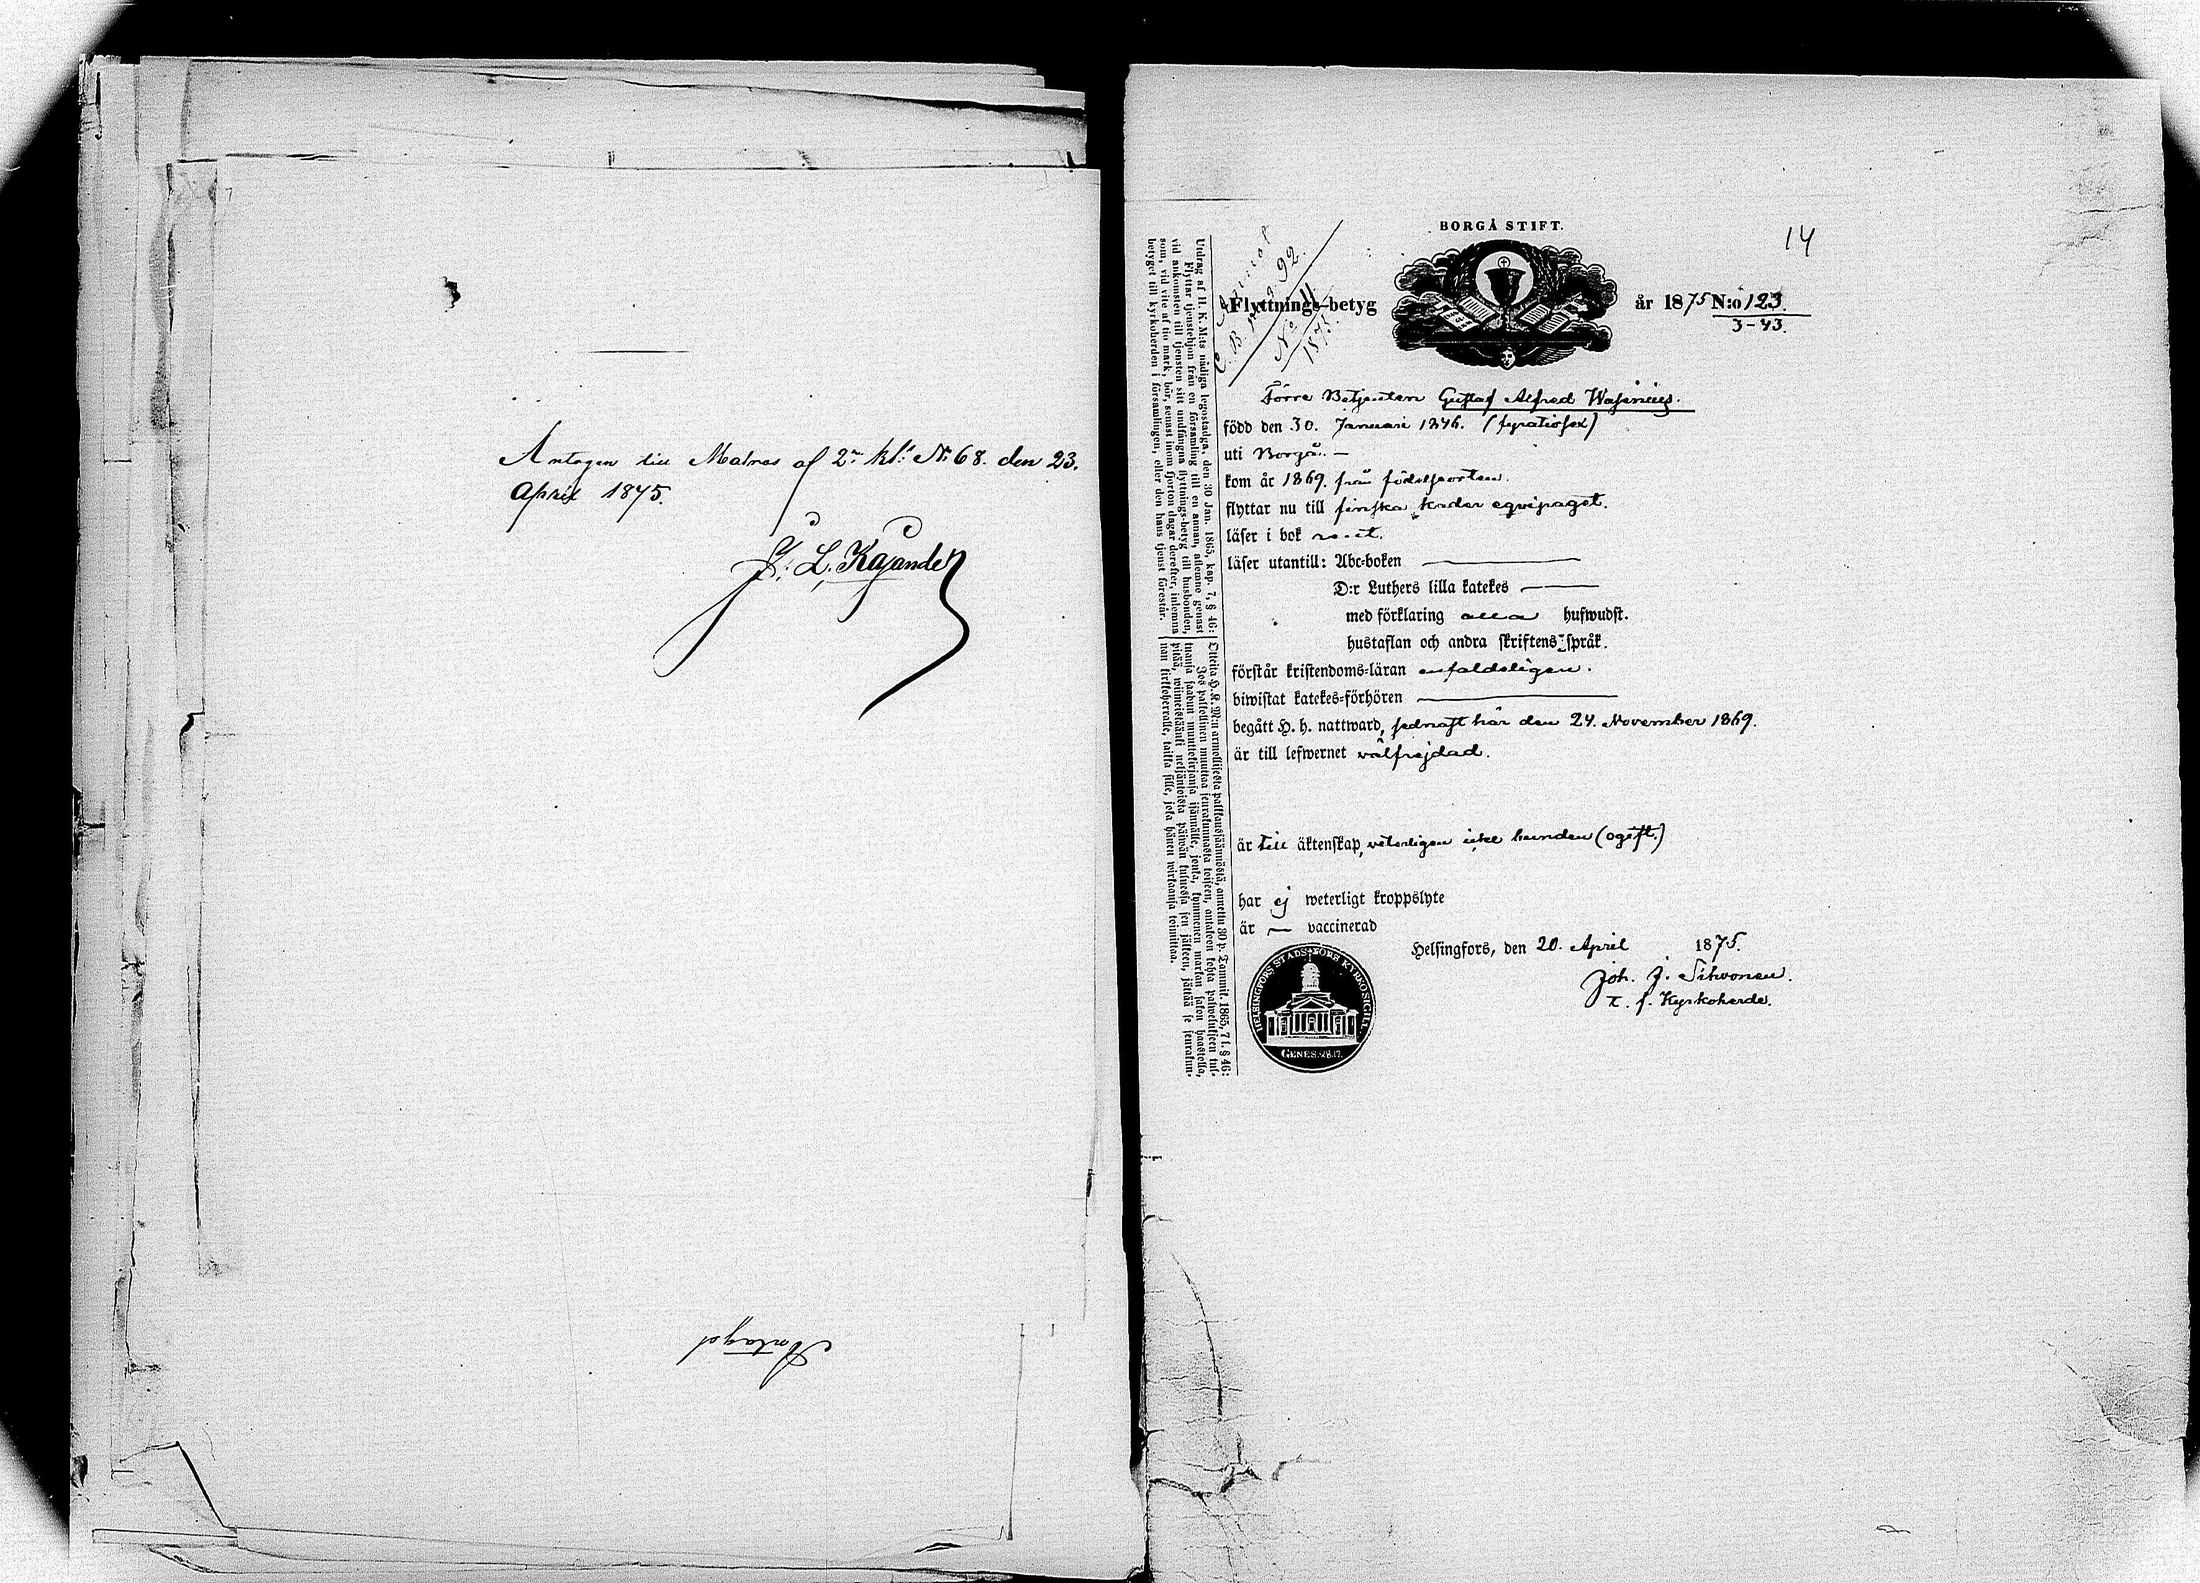 Antagen till Matros af 2:n kl: N:o 68. den 23.
April 1875.
J. L. Kajander
Antagod
14
BORGÅ STIFT.
Flyttnings-betyg år 1875 N:o 123.
3-43.
C. B.
92.
N:o 11.
1875.
Förre Betjenten Gustaf Alfred Wasenius.
född den 30. Januari 1846. (fyratiosex)
uti Borgå. —
kom år 1869. från födelseorten.
flyttar nu till finska kader eqvipaget.
läser i bok
läser utantill: Abc-boken —
D:r Luthers lilla katekes —
med förklaring alla hufwudst.
hustaflan och andra skriftens språk.
förstår kristendoms-läran enfaldeligen.
biwistat katekes-förhören —
begått H. h. nattward, sednast här den 24. November 1869.
är till lefwernet välfrejdad.
är till äktenskap, veterligen icke bunden (ogift.)
har ej weterligt kroppslyte
är — vaccinerad
Helsingfors, den 20. April 1875.
Joh. J. Sihvonen.
T. f. Kyrkoherde.
HELSINGFORS STADS FÖRS KYRKOSIGILL.
GENES. 28.17.
Utdrag af H. K. M:ts nådiga legostadga, den 30 Jan. 1865, kap. 7, § 46:
Flyttar tjenstehjon från en församling till en annan, aflemne genast
vid ankomsten till tjensten sitt undfångna flyttnings-betyg till husbonden,
som, vid vite af tio mark, bör, senast inom fjorton dagar derefter, inlemna
betyget till kyrkoherden i församlingen, eller den hans tjenst förestår.
Otteita H. K. M:n armollisesta palkkaussäännöstä, annettu 30 p. Tammik. 1865, 7 l. § 46:
Jos palkollinen muuttaa seurakunnasta toiseen, antakoon kohta palwelukseen tul-
tuansa saadun muuttokirjansa isännälle, jonka, kymmenen markan sakon haastolla,
pitää, wiimeistäänki neljäntoista päiwän kuluessa sen jälkeen, jättää se seurakun-
nan kirkkoherralle, taikka sille, joka hänen wirkaansa toimittaa.